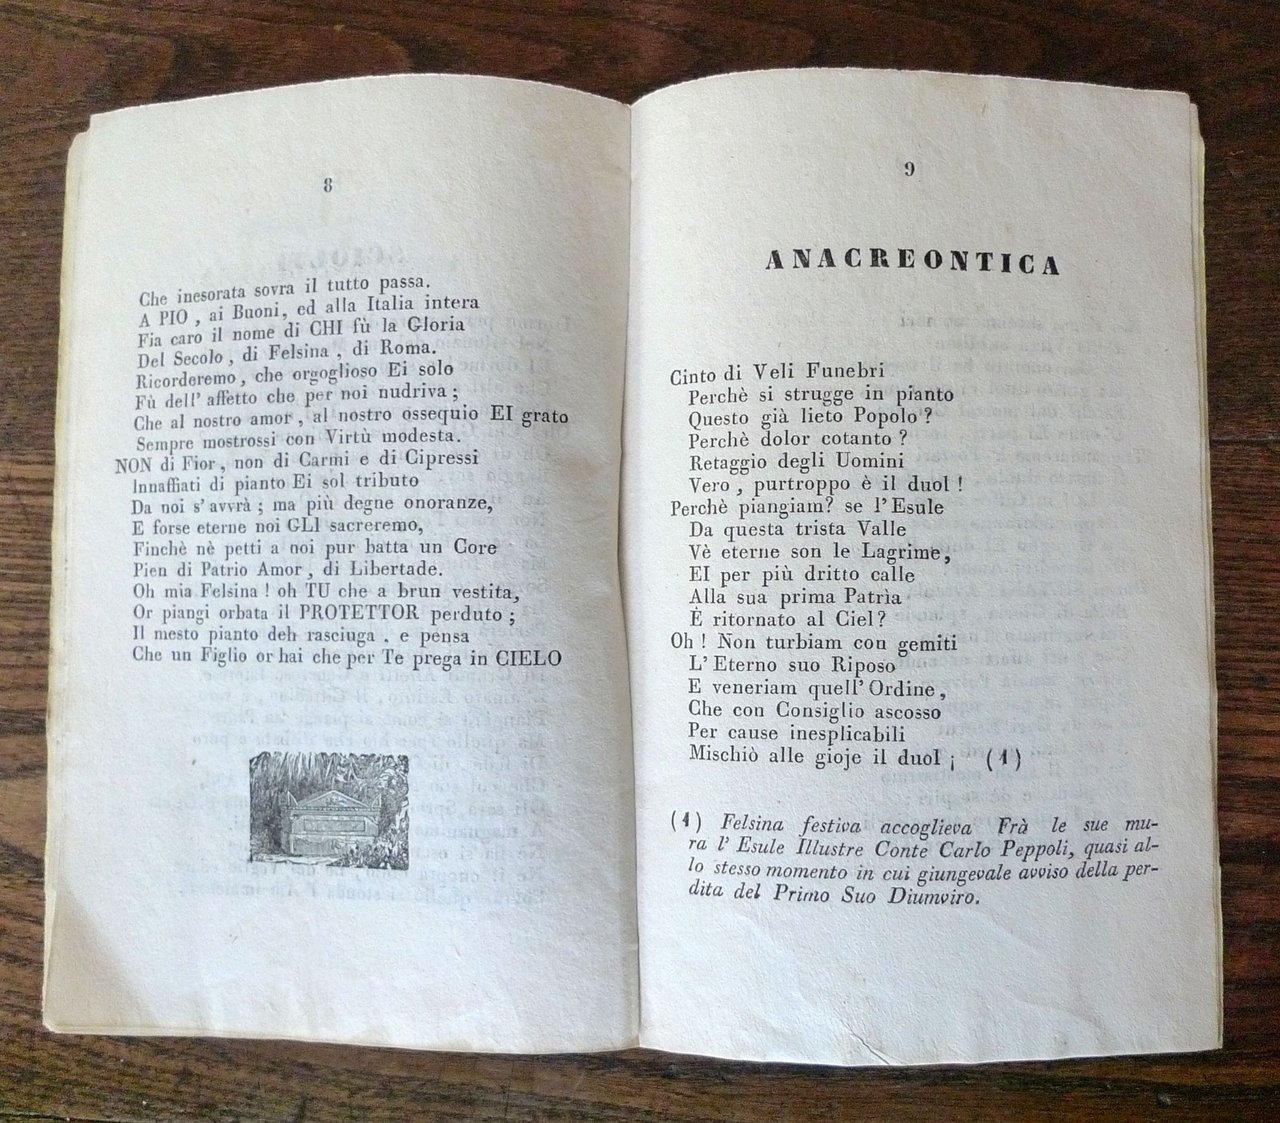 8
Che inesorata sovra il tutto passa.
A PIO , ai Buoni, ed alla Italia intera
Fia caro il nome di CHI fù la Gloria
Del Secolo , di Felsina , di Roma.
Ricorderemo, che orgoglioso Ei solo
Fù dell' affetto che per noi nudriva ;
Che al nostro amor , al nostro ossequio EI grato
Sempre mostrossi con Virtù modesta.
NON di Fior, non di Carmi e di Cipressi
Innaffiati di pianto Ei sol tributo
Da noi s' avvrà ; ma più degne onoranze,
E forse eterne noi GLI sacreremo,
Finchè nè petti a noi pur batta un Core
Pien di Patrio Amor , di Libertade.
Oh mia Felsina ! oh TU che a brun vestita,
Or piangi orbata il PROTETTOR perduto ;
Il mesto pianto deh rasciuga . e pensa
Che un Figlio or hai che per Te prega in CIELO
9
ANACREONTICA
Cinto di Veli Funebri
Perchè si strugge in pianto
Questo già lieto Popolo ?
Perchè dolor cotanto ?
Retaggio degli Uomini
Vero , purtroppo è il duol !
Perchè piangiam? se l'Esule
Da questa trista Valle
Vè eterne son le Lagrime,
EI per più dritto calle
Alla sua prima Patrìa
È ritornato al Ciel?
Oh ! Non turbiam con gemiti
L' Eterno suo Riposo
E veneriam quell' Ordine,
Che con Consiglio ascosso
Per cause inesplicabili
Mischiò alle gioje il duol ¡ (1)
(1) Felsina festiva accoglieva Frà le sue mu-
ra l' Esule Illustre Conte Carlo Peppoli, quasi al-
lo stesso momento in cui giungevale avviso della per-
dita del Primo Suo Diumviro.